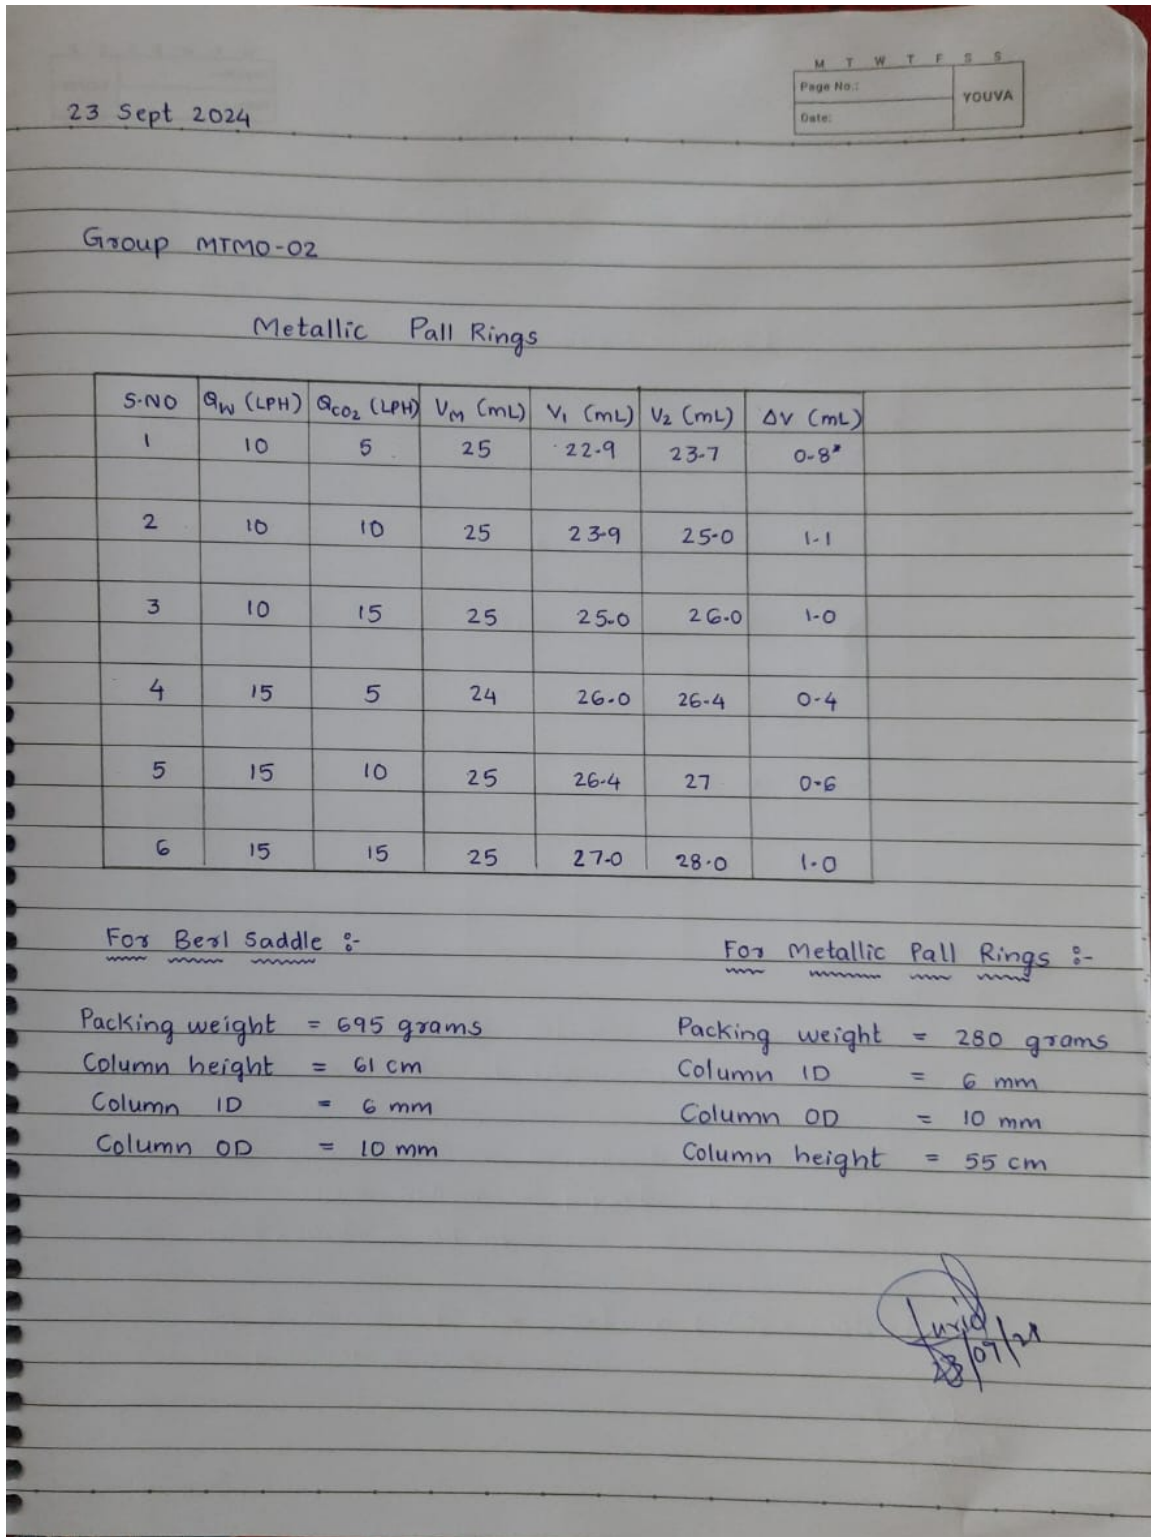 M T W T F S S
Page No.:
YOUVA
Date:
23 Sept 2024
Group MTMO-02
Metallic Pall Rings
S.NO Qw (LPH) QCO2 (LPH) VM (mL) V1 (mL) V2 (mL) ΔV (mL)
1 10 5 25 22.9 23.7 0.8*
2 10 10 25 23.9 25.0 1.1
3 10 15 25 25.0 26.0 1.0
4 15 5 24 26.0 26.4 0.4
5 15 10 25 26.4 27 0.6
6 15 15 25 27.0 28.0 1.0
For Berl Saddle :-
Packing weight = 695 grams
Column height = 61 cm
Column ID = 6 mm
Column OD = 10 mm
For Metallic Pall Rings :-
Packing weight = 280 grams
Column ID = 6 mm
Column OD = 10 mm
Column height = 55 cm